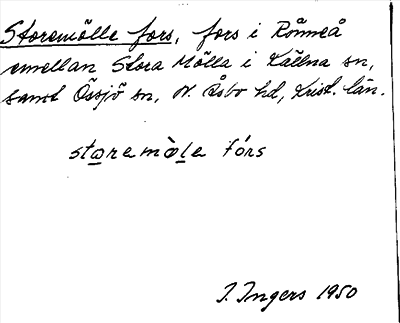 Storemölle fors, fors i Rönneå
emellan Stora Mölla i Källna sn,
samt Össjö sn, N. Åsbo hd, Krist. län.
storemòle fórs
I. Ingers 1950